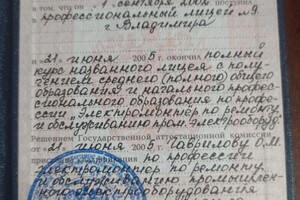 в том, что он 1 сентября 2002
профессиональный лицей №9
г. Владимира
и 21 июня 2005 г. окончил полный
курс названного лицея с полу-
чением среднего (полного) общего
образования и начального профес-
сионального образования по профе-
ссии „Электромонтёр по ремонту
и обслуживанию пром. электрооборуд.
Решением Государственной аттестационной комиссии
от 21 июня 2005 г. Гаврилову О.М.
по профессии
электромонтёр по ремонту
и обслуживанию промышлен-
ного электрооборудования